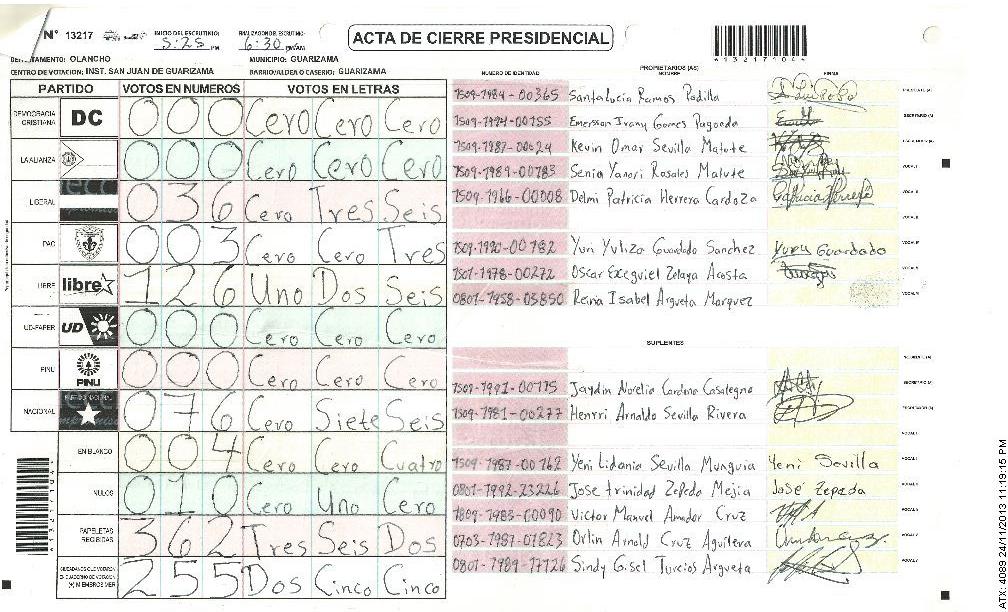 N° 13217
INICIO DEL ESCRUTINIO:
5:25 PM
FINALIZACION DEL ESCRUTINIO:
6:30 PM/AM
ACTA DE CIERRE PRESIDENCIAL
4132171044
OLANCHO
MUNICIPIO: GUARIZAMA
CENTRO DE VOTACION: INST. SAN JUAN DE GUARIZAMA
BARRIO/ALDEA O CASERIO: GUARIZAMA
PARTIDO VOTOS EN NUMEROS VOTOS EN LETRAS
DEMOCRACIA CRISTIANA DC 000 Cero Cero Cero
LA ALIANZA 000 Cero Cero Cero
LIBERAL 036 Cero Tres Seis
PAC 003 Cero Cero Tres
LIBRE libre 126 Uno Dos Seis
UD-FAPER UD 000 Cero Cero Cero
PINU PINU 000 Cero Cero Cero
NACIONAL 076 Cero Siete Seis
EN BLANCO 004 Cero Cero Cuatro
NULOS 010 Cero Uno Cero
PAPELETAS RECIBIDAS 362 Tres Seis Dos
255 Dos Cinco Cinco
PROPIETARIOS (AS)
NUMERO DE IDENTIDAD NOMBRE FIRMA
1509-1984-00365 Santa Lucia Ramos Padilla
1509-1994-00155 Emerson Irany Gomes Pagoeda
1509-1987-00624 Kevin Omar Sevilla Matute
1509-1989-00783 Senia Yanori Rosales Matute
1509-1966-00008 Delmi Patricia Herrera Cardoza Patricia Herrera
1509-1990-00782 Yuri Yuliza Guardado Sanchez Yury Guardado
1501-1978-00272 Oscar Exequiel Zelaya Acosta
0801-1958-05850 Reina Isabel Argueta Marquez
SUPLENTES
1509-1991-00775 Jaydin Norelio Cardona Casalegno
1509-1981-00277 Henrri Arnaldo Sevilla Rivera
1509-1987-00762 Yeni Lidania Sevilla Munguia Yeni Sevilla
0801-1992-23226 Jose trinidad Zepeda Mejia José Zepeda
1809-1983-00090 Victor Manuel Amador Cruz
0703-1987-01823 Orlin Arnold Cruz Aguilera
0801-1989-17726 Sindy Gisel Turcios Argueta
4132171044
ATX: 4089 24/11/2013 11:19:15 PM